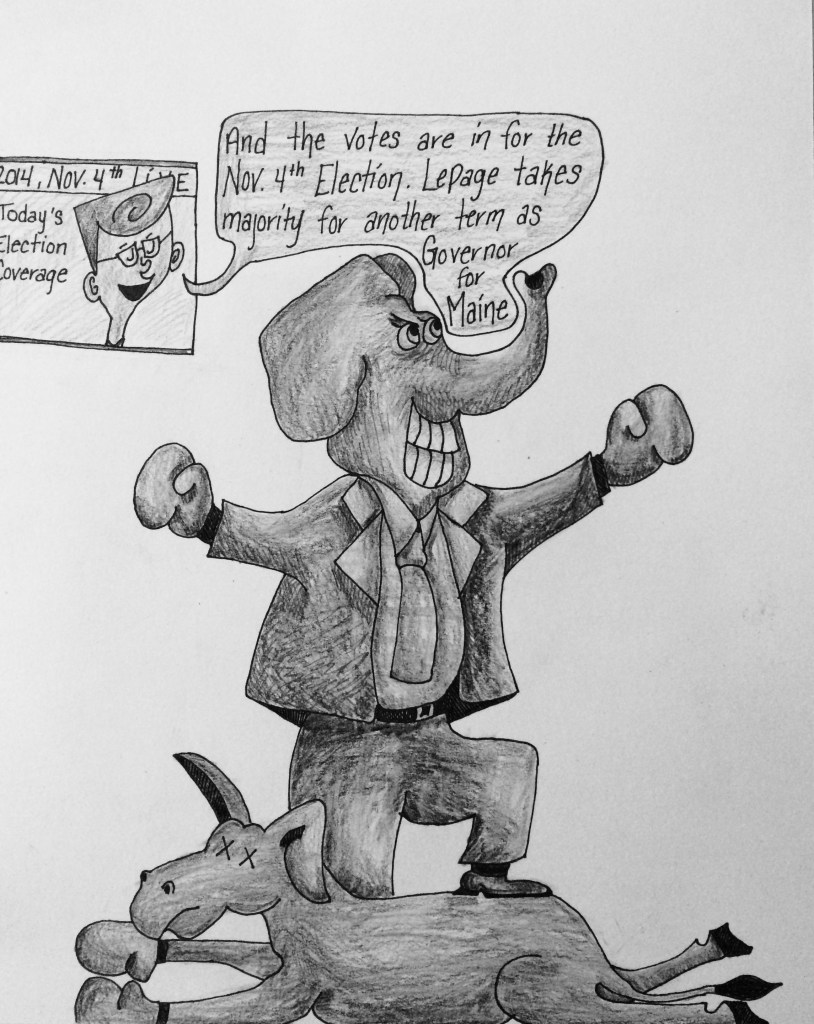 2014, Nov. 4th Live
Today's
Election
Coverage
And the votes are in for the
Nov. 4th Election. LePage takes
majority for another term as
Governor
for
Maine